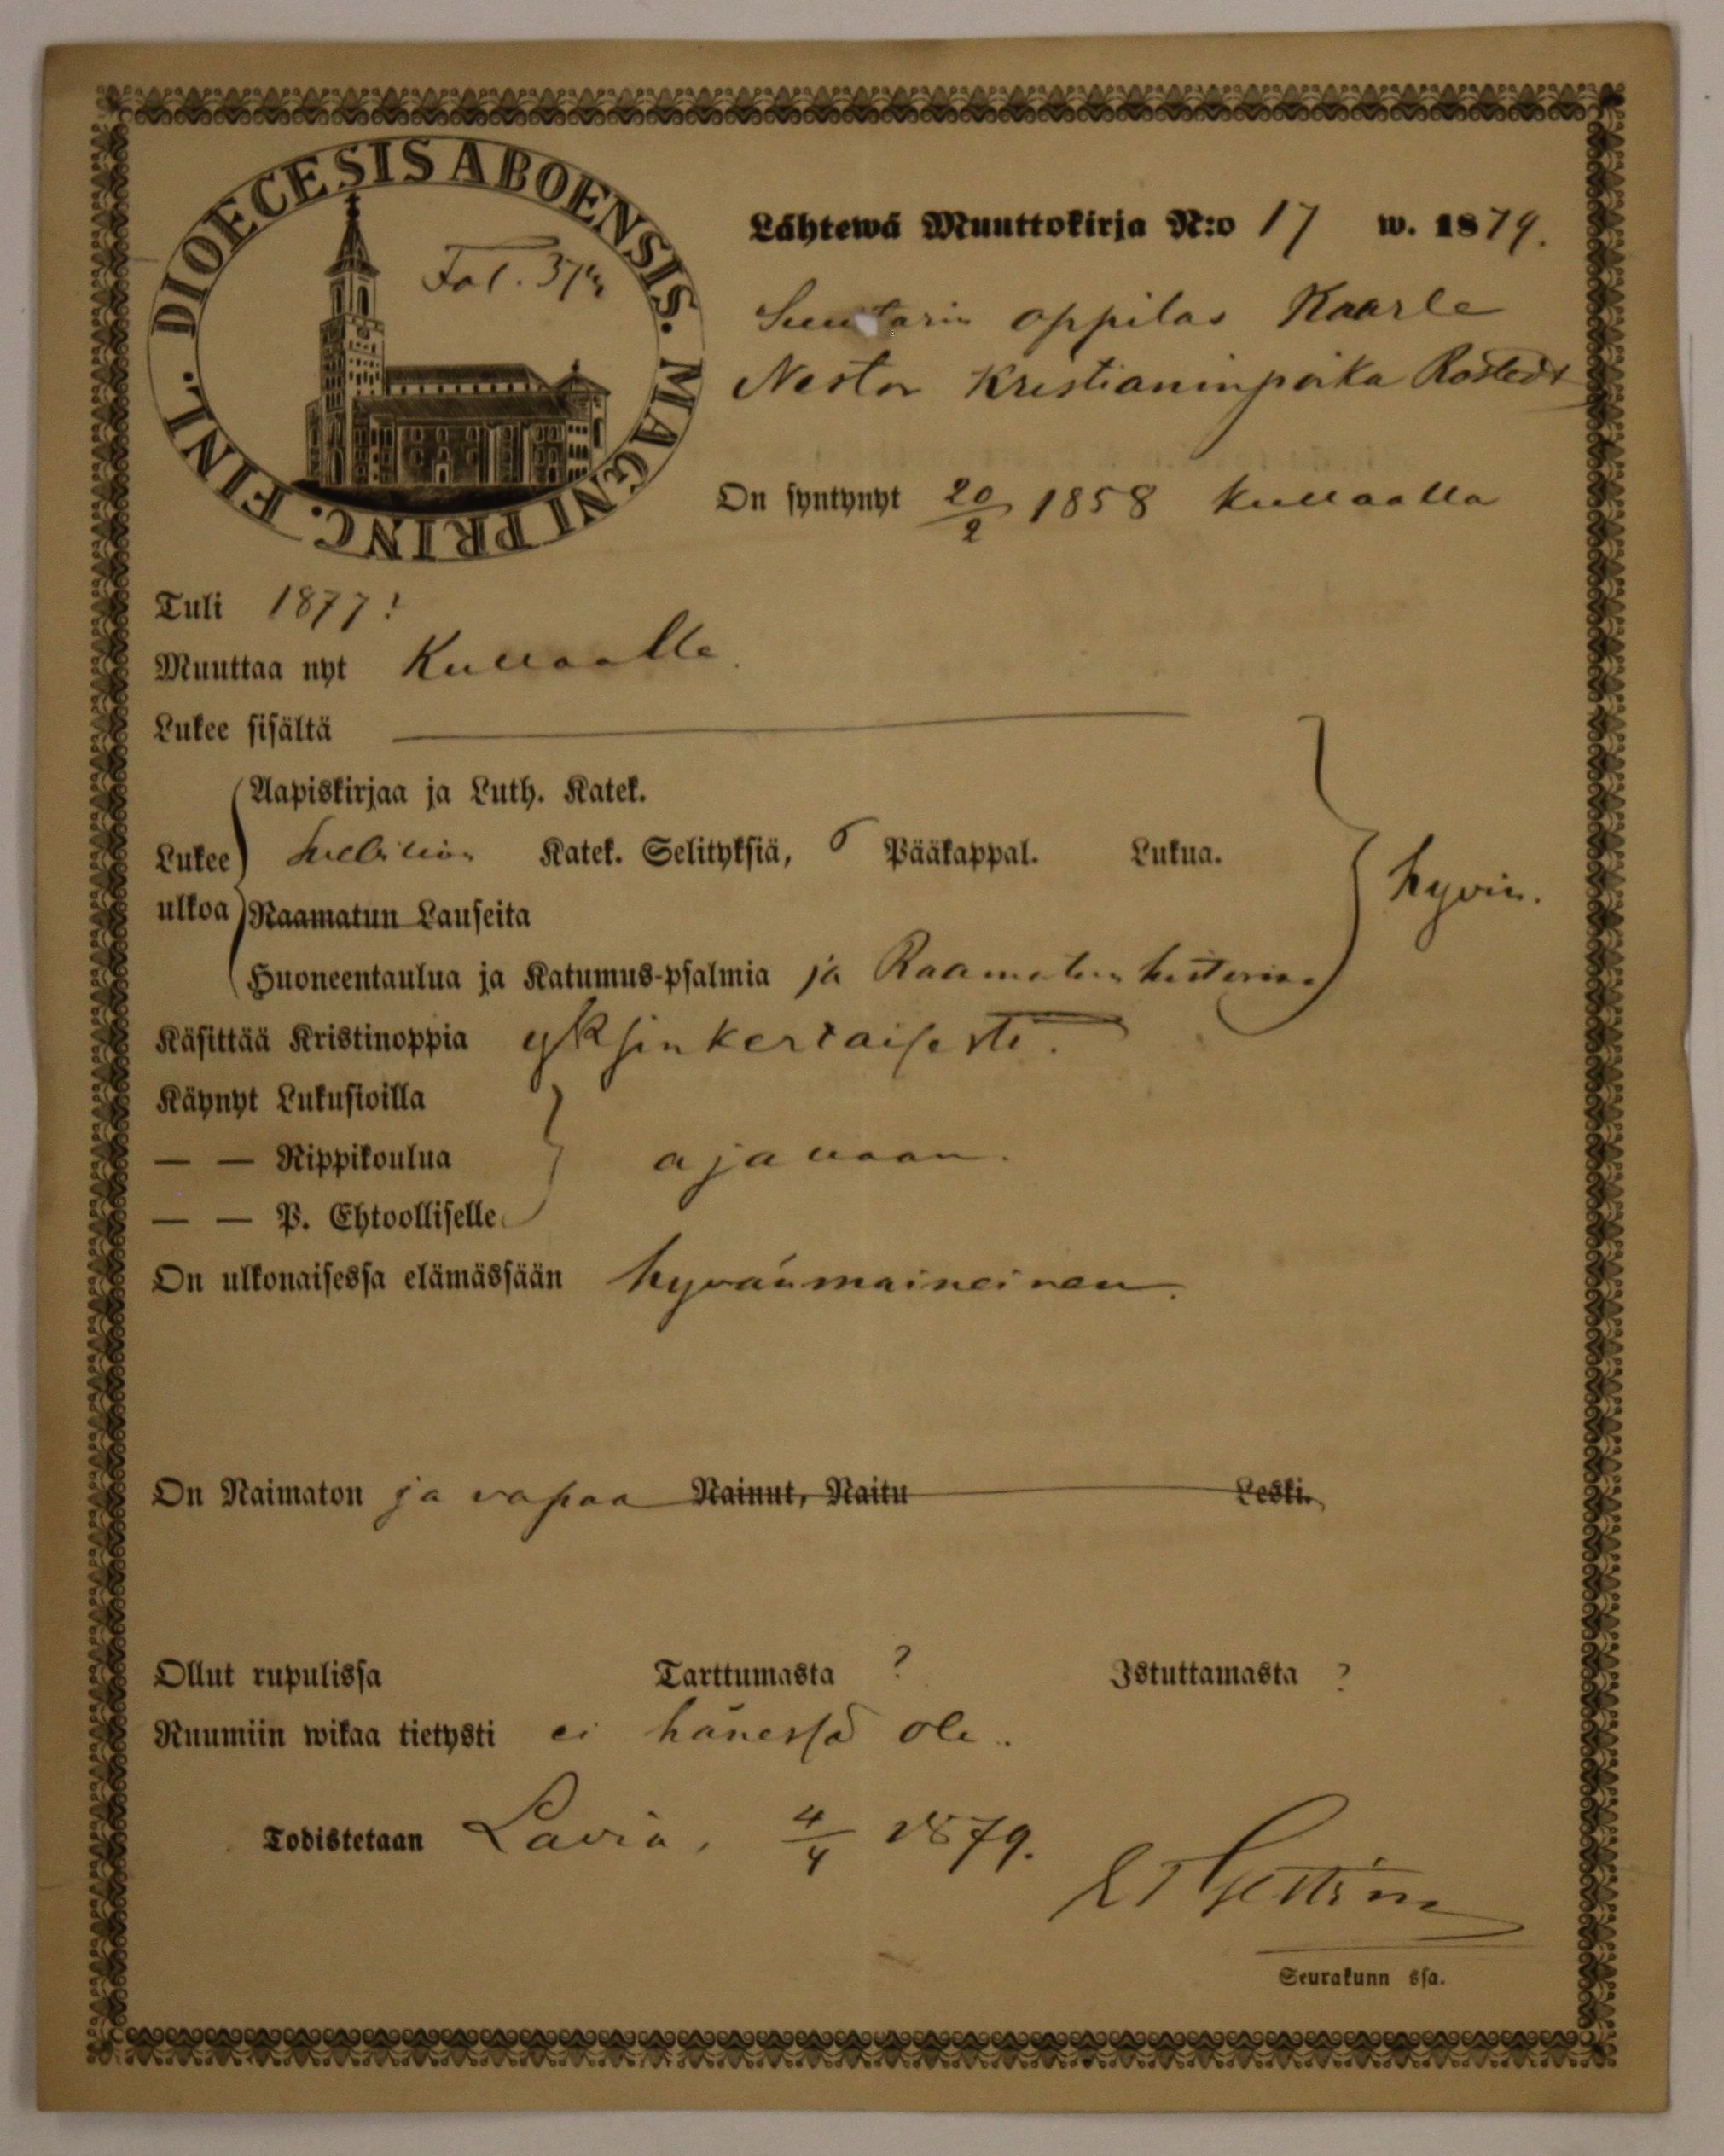 DIOECESIS ABOENSIS. MAGNI PRINC. FINL.
Fol.
Lähtewä Muuttokirja N:o 17 w. 1879.
Suutarin oppilas Kaarle
Nestor Kristianinpoika Rostedt
On syntynyt 20/2 1858 Kullaalla
Tuli 1877!
Muuttaa nyt Kullaalle.
Lukee sisältä
Aapiskirjaa ja Luth. Katek.
Lukee ulkoa
Katek. Selityksiä, 6 Pääkappal. Lukua.
hyvin.
Raamatun Lauseita
Huoneentaulua ja Katumus-psalmia ja Raamatun historiaa
Käsittää Kristinoppia yksinkertaisesti.
Käynyt Lukusioilla
— — Rippikoulua ajallaan.
— — P. Ehtoolliselle
On ulkonaisessa elämässään hyvänmaineinen.
On Naimaton ja vapaa Nainut, Naitu Leski.
Ollut rupulissa Tarttumasta ? Istuttamasta ?
Ruumiin wikaa tietysti ei hänessä ole.
Todistetaan Lavia, 4/4 1879.
Seurakunn ssa.